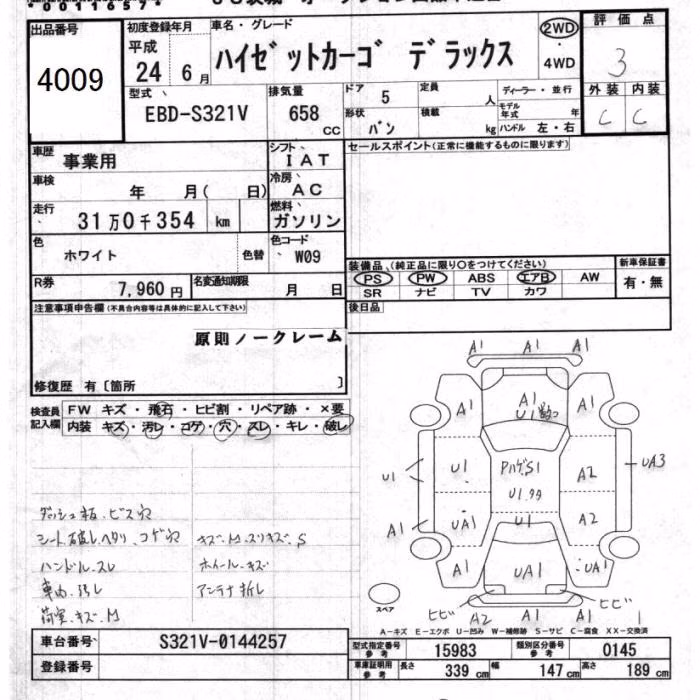 出品番号 初度登録年月 車名・グレード 評価点
4009 平成 24 6月 ハイゼットカーゴ デラックス 2WD・4WD 3
外装 内装
C C
型式 EBD-S321V 排気量 658 CC ドア 5 定員 人 ディーラー・並行
形状 バン 積載 kg モデル年式 年 ハンドル 左・右
車歴 事業用 シフト IAT セールスポイント(正常に機能するものに限ります)
車検 年 月( 日) 冷房 AC
走行 31万0千354 km 燃料 ガソリン
色 ホワイト 色替 色コード W09
装備品 (純正品に限り○をつけてください) 新車保証書
PS PW ABS エアB AW 有・無
SR ナビ TV カワ
R券 7,960円 名変通知期限 月 日 後日品
注意事項申告欄(不具合内容等は具体的に記入して下さい)
原則ノークレーム
修復歴 有〔箇所 〕
検査員記入欄 FW キズ・飛石・ヒビ割・リペア跡・×要
内装 キズ・汚レ・コゲ・穴・スレ・キレ・破レ
ダッシュ板、ビス穴
シート破レ、ヘタリ、コゲ穴 キズ、M、スリキズ、S
ハンドル、スレ ホイール、キズ
車内、汚レ アンテナ折レ
荷室、キズ、M
A1 A1 A1
A1 A1 A1
U1
U1 U1 PハゲS1 A2 UA3
U1
A1 UA1 U1 A2
A1 UA1 UA1
ヒビ ヒビ
スペア A2 A1 A1
A-キズ E-エクボ U-凹み W-補修跡 S-サビ C-腐食 XX-交換済
車台番号 S321V-0144257 型式指定番号 参考 15983 類別区分番号 参考 0145
登録番号 車庫証明用 参考 長さ 339 cm 幅 147 cm 高さ 189 cm